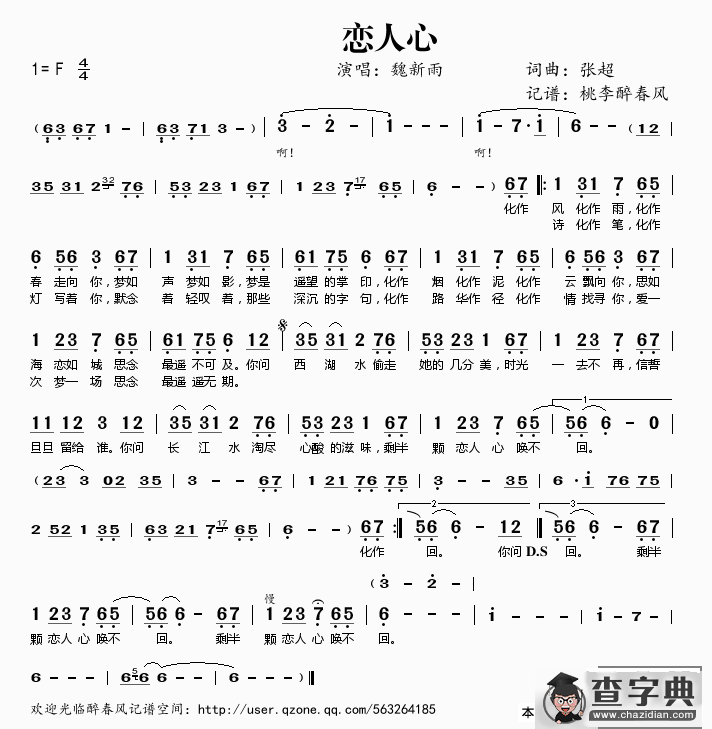 恋人心
1=F 4/4 演唱：魏新雨 词曲：张超
记谱：桃李醉春风
(63 67 1 - | 63 71 3 - ) | 3 - 2 - | 1 - - - | 1 - 7·i | 6 - - (12 |
啊！ 啊！
35 31 2 32 76 | 53 23 1 67 | 1 23 7 17 65 | 6 - - ) 67 ‖: 1 31 7 65 |
化作 风 化作 雨，化作
诗 化作 笔，化作
6 56 3 67 | 1 31 7 65 | 61 75 6 67 | 1 31 7 65 | 6 56 3 67 |
春 走向 你，梦如 声 梦如 影，梦是 遥望 的掌 印，化作 烟 化作 泥 化作 云 飘向 你，思如
灯 写着 你，默念 着 轻叹 着，那些 深沉 的字 句，化作 路 华作 径 化作 情 找寻 你，爱一
1 23 7 65 | 61 75 6 12 | 35 31 2 76 | 53 23 1 67 | 1 23 7 65 |
海 恋如 城 思念 最遥 不可 及。你问 西 湖 水 偷走 她的 几分 美，时光 一 去不 再，信誓
次 梦一 场 思念 最遥 遥无 期。
11 12 3 12 | 35 31 2 76 | 53 23 1 67 | 1 23 7 65 | 1 56 6 - 0 |
旦旦 留给 谁。你问 长 江 水 淘尽 心酸 的滋 味，剩半 颗 恋人 心 唤不 回。
(23 3 02 35 | 1 - - 67 | 1 21 76 75 | 3 - - 35 | 6·i 76 75 |
2 52 1 35 | 63 21 7 17 65 | 6 - - ) 67 :‖ 2 56 6 - 12 ‖ 3 56 6 - 67 |
化作 回。 你问 D.S 回。 剩半
(3 - 2 - |
慢
1 23 7 65 | 56 6 - 67 | 1 23 7 65 | 6 - - - | i - - - | i - 7 - |
颗 恋人 心 唤不 回。 剩半 颗 恋人 心 唤不 回。
6 - - - | 6 5 6 6 - - | 6 - - - )‖
欢迎光临醉春风记谱空间：http://user.qzone.qq.com/563264185
本
查字典
www.chazidian.com